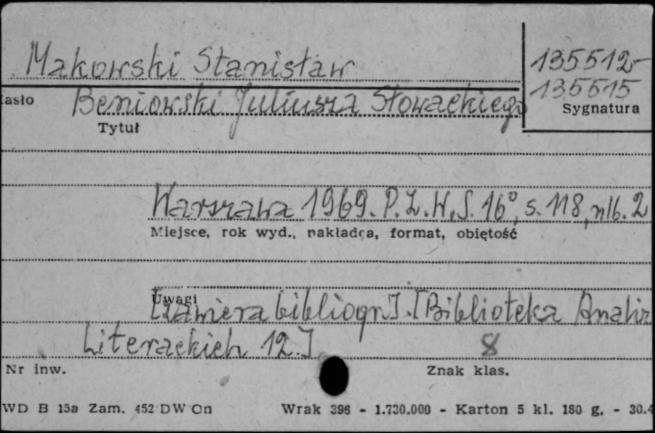 Makowski Stanisław
135512-
135515
Sygnatura
Hasło Beniowski Juliusza Słowackiego
Tytuł
Warszawa 1969. P.Z.W.S. 16°, s. 118, nlb. 2
Miejsce, rok wyd., nakładca, format, objętość
Uwagi
[Zawiera bibliogr.]. [Biblioteka Analiz
Literackich 12.]
8
Nr inw.
Znak klas.
WD B 15a Zam. 452 DW On Wrak 396 - 1.730.000 - Karton 5 kl. 180 g. - 30.4